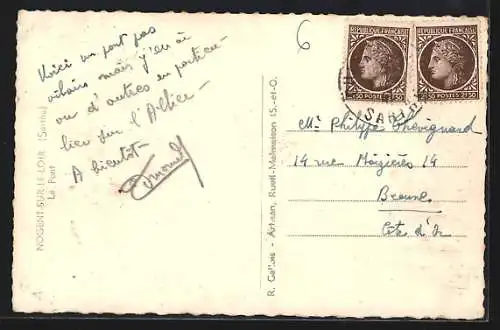 Voici un pont pas
vilain mais j'en ai
vu d'autres en particu-
lier sur l'Allier
A bientôt
NOGENT-SUR-LE-LOIR (Sarthe)
Le Pont
R. Gallais - Artisan, Rueil-Malmaison (S.-et-O.
6
REPUBLIQUE FRANÇAISE
POSTES 2F50
REPUBLIQUE FRANÇAISE
POSTES 2F50
SARTHE
Mr Philippe Chevignard
14 rue Mazières 14
Beaune
Côte d'Or